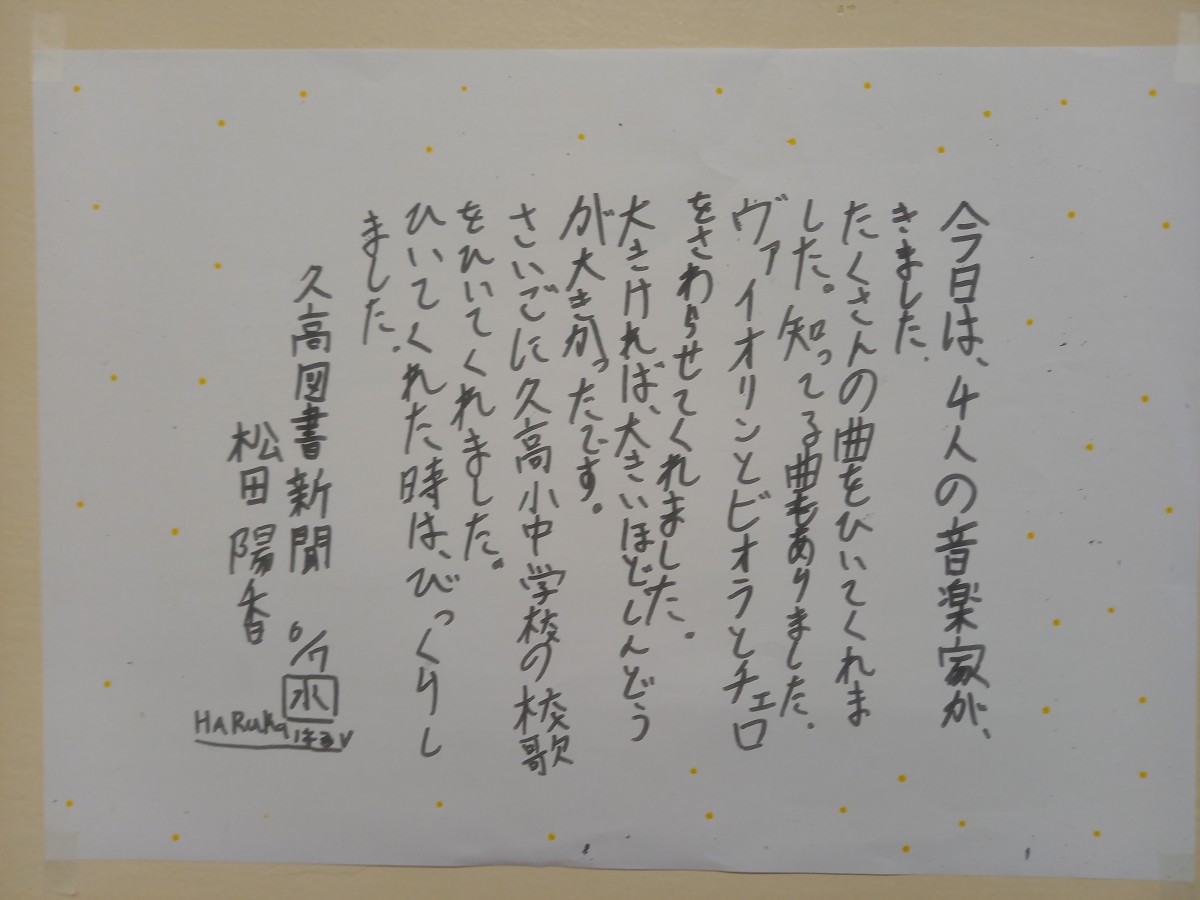 今日は、4人の音楽家が、
きました.
たくさんの曲をひいてくれま
した。知ってる曲もありました.
ヴァイオリンとビオラとチェロ
をさわらせてくれました。
大きければ、大きいほどしんどう
が大きかったです。
さいごに久高小中学校の校歌
をひいてくれました。
ひいてくれた時は、びっくりし
ました.
久高図書新聞 6/17 水
松田陽香
HARuKa